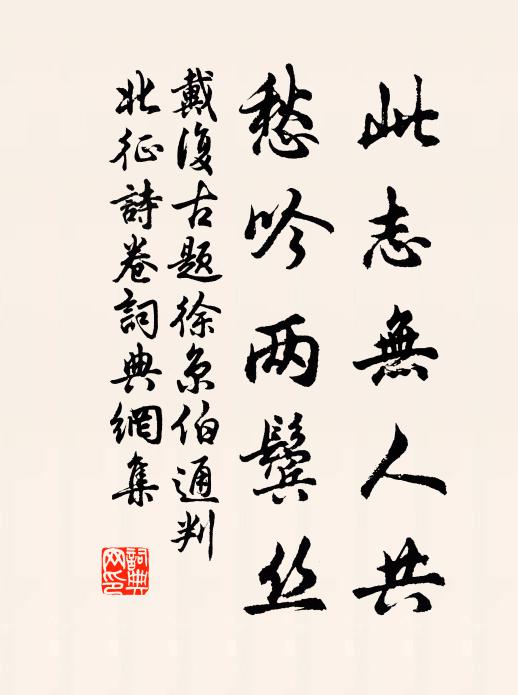 此志無人共
愁吟两鬓丝
戴復古題徐京伯通判
北征詩卷詞典網集
詞典
网印